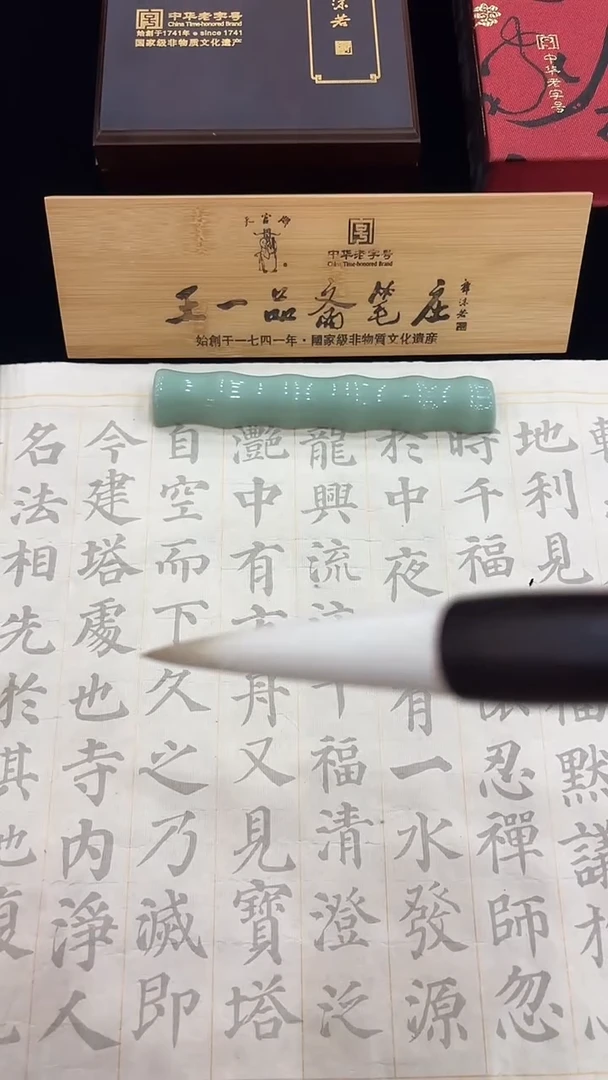 中华老字号
China Time-honored Brand
始創于1741年 • since 1741
国家级非物质文化遗产
沫若
中华老字号
中华老字号
China Time-honored Brand
王一品斋笔庄
郭沫若
始創于一七四一年·國家級非物質文化遺産
地利見福默議於
時千福忍禪師忽
於中夜有一水發源
龍興流千福清澄泛
灧中有方舟又見寶塔
自空而下久之乃滅即
今建塔處也寺內淨人
名法相先於其地復